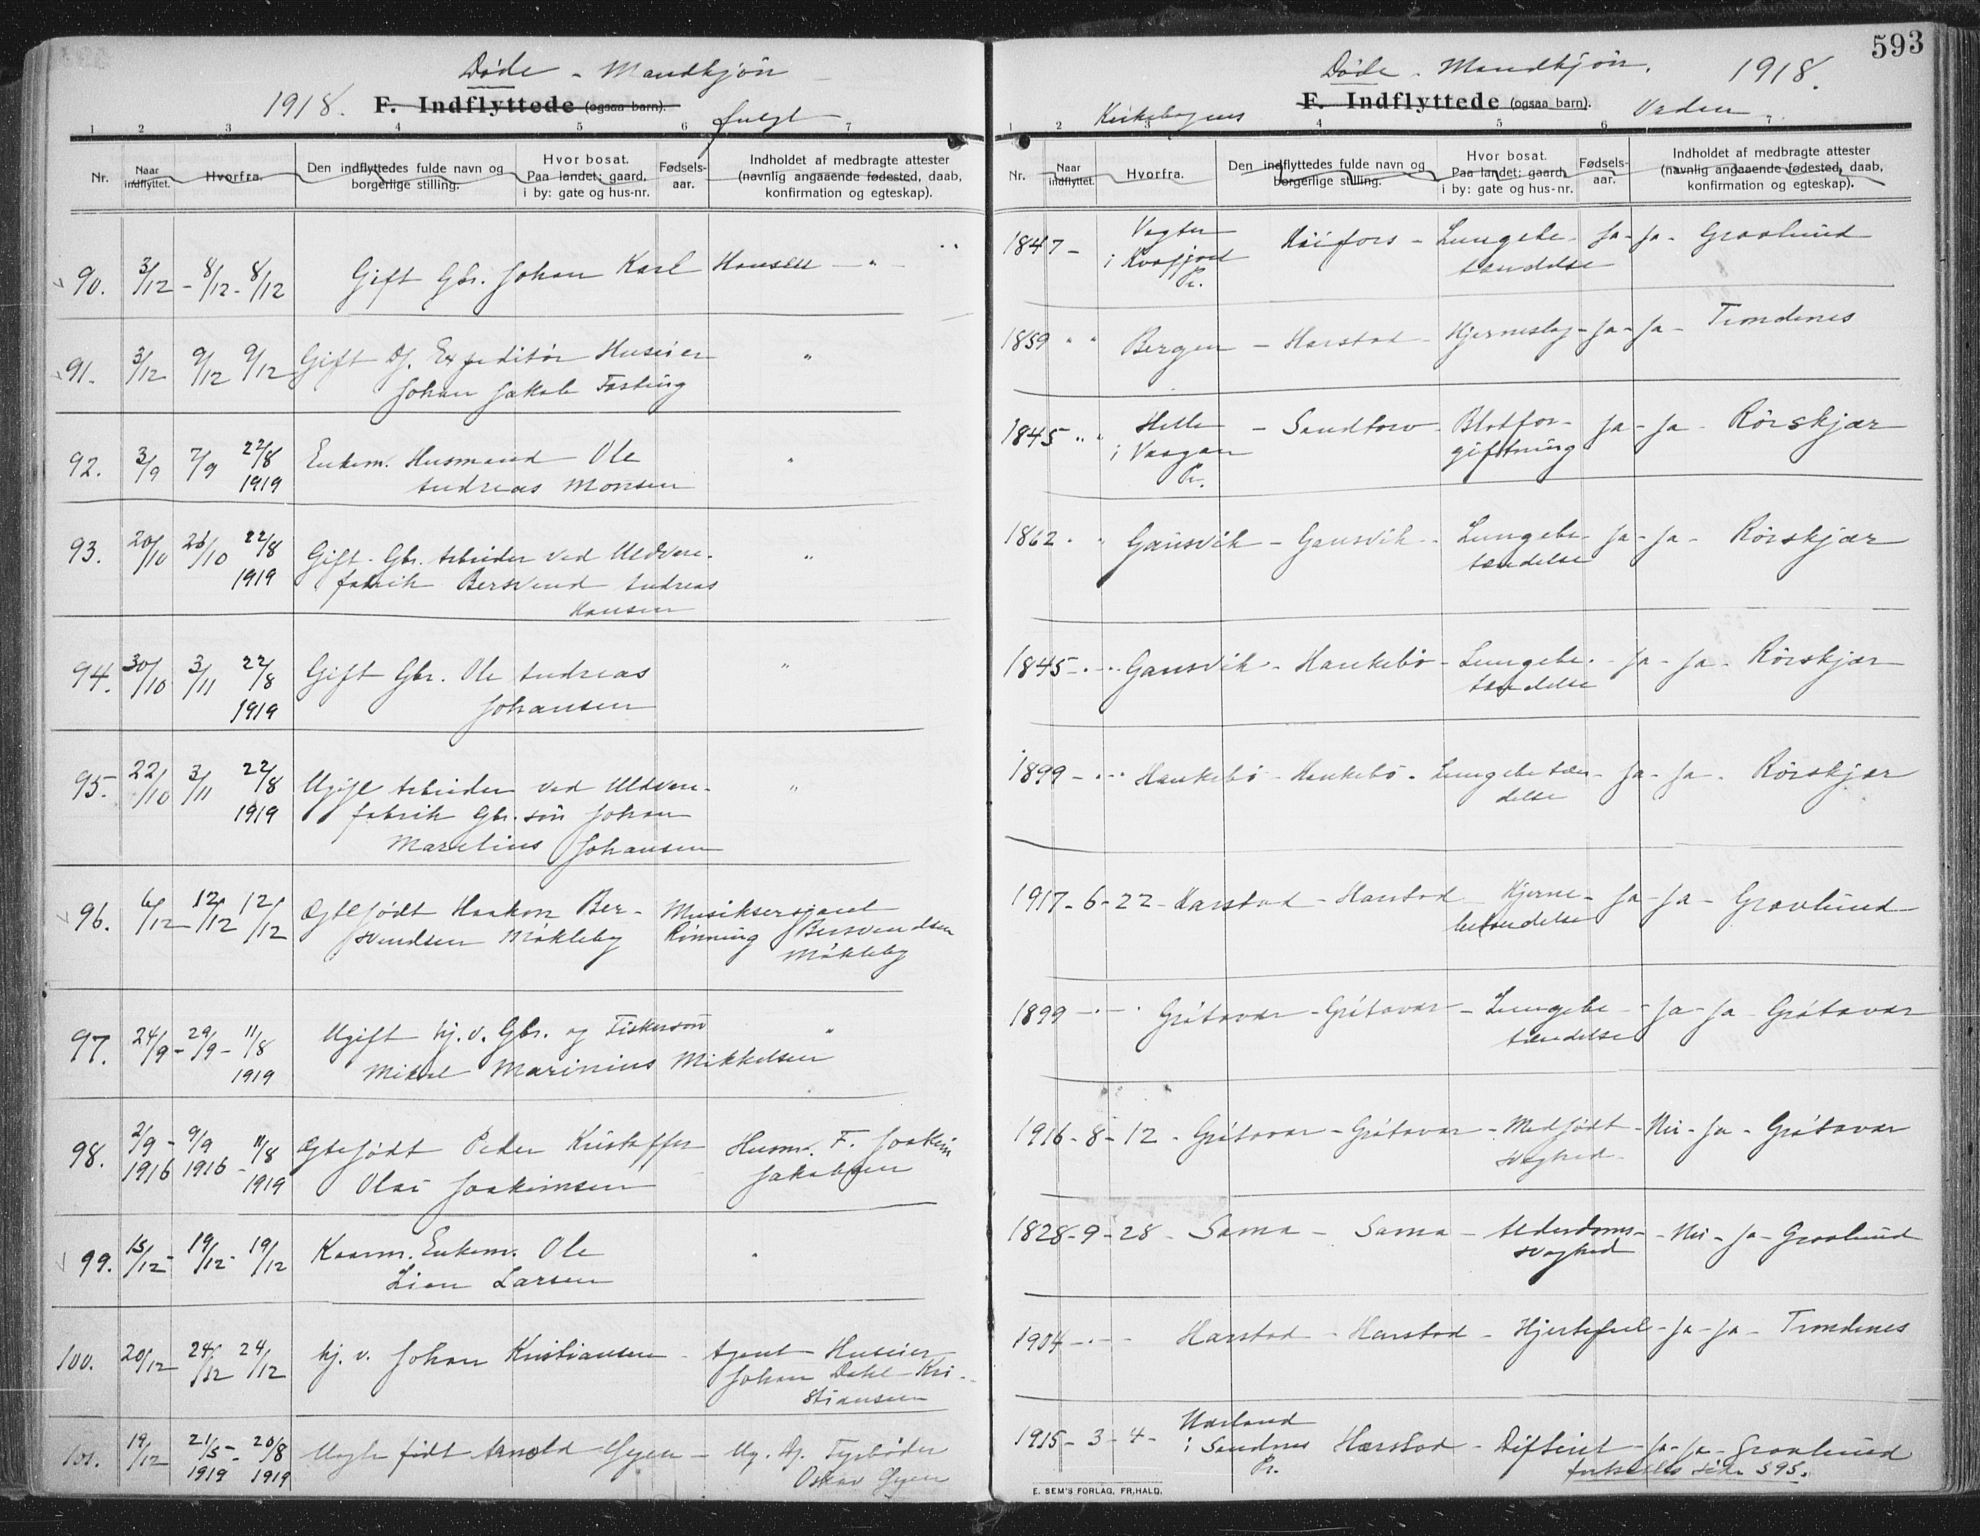 593
Døde - Mandkjøn
1918. F. Indflyttede (ogsaa barn). fulgt
1 2 3 4 5 6 7
Nr. Naar indflyttet. Hvorfra. Den indflyttedes fulde navn og borgerlige stilling. Hvor bosat. Paa landet: gaard, i by: gate og hus-nr. Fødsels-aar. Indholdet af medbragte attester (navnlig angaaende fødested, daab, konfirmation og egteskap).
90. 3/12 - 8/12 - 8/12 Gift Gbr. Johan Karl Hansen - "
91. 3/12 9/12 9/12 Gift Dj. Expeditør Huseier "
Johan Jakob Fasting
92. 3/9 7/9 22/8 Enkem. Husmand Ole "
1919 Andreas Monsen
93. 20/10 26/10 22/8 Gift. Gbr. Arbeider ved Uldvare- "
1919 fabrik Bersvend Andreas
Hansen
94. 30/10 3/11 22/8 Gift Gbr. Ole Andreas "
1919 Johansen
95. 22/10 3/11 22/8 Ugift Arbeider ved Uldvare- "
1919 fabrik Gbr. søn Johan
Marelius Johansen
96. 6/12 - 12/12 12/12 Ægtefødt Haakon Ber- Musiksersjant
svendsen Møkleby Rønning Bersvendsen
Møkleby
97. 24/9 - 29/9 - 11/8 Ugift hj. v. Gbr. og Fiskersøn "
1919 Mikal Marinius Mikkelsen
98. 2/9 - 9/9 11/8 Ægtefødt Peder Kristoffer Husm. F. Joakim
1916 1916 - 1919 Olai Joakimsen Jakobsen
99. 15/12 - 19/12 - 19/12 Kaarm. Enkem. Ole "
Zion Larsen
100. 20/12 24/12 24/12 hj. v. Johan Kristiansen - Agent Huseier
Johan Dahl Kri-
stiansen
101. 19/12 21/5 - 20/8 Uægte født Arnold - Ug. Dj.
1919 1919 Oskar
Døde - Mandkjøn. 1918.
Kirkebogens F. Indflyttede (ogsaa barn). Orden.
1 2 3 4 5 6 7
Nr. Naar indflyttet. Hvorfra. Den indflyttedes fulde navn og borgerlige stilling. Hvor bosat. Paa landet: gaard, i by: gate og hus-nr. Fødsels-aar. Indholdet af medbragte attester (navnlig angaaende fødested, daab, konfirmation og egteskap).
1847 - i Kvæfjord Pr. - Lungebe- Ja - Ja - Gravlund
tændelse
1859 " " Bergen - Harstad - Hjerneslag - Ja - Ja - Trondenes
1845 " " Helle - Sandtorv - Blodfor- Ja - Ja - Rørskjær
i Vaagan Pr. giftning
1862 " " Gansvik - Gansvik - Lungebe- Ja - Ja - Rørskjær
tændelse
1845 - " - Gansvik - Haukebø - Lungebe- - Ja - Ja - Rørskjær
tændelse
1899 - " " Haukebø - Haukebø - Lungebetæn- - Ja - Ja - Rørskjær
delse
1917 - 6 - 22 - Harstad - Harstad - Hjerne- - Ja - Ja - Gravlund
betændelse
1899 - " - " Grøtavær - Grøtavær - Lungebe- - Ja - Ja - Grøtavær
tændelse
1916 - 8 - 12 - Grøtavær - Grøtavær - Medfødt - Nei - Ja - Grøtavær
svaghed
1828 - 9 - 28 - Sama - Sama - Alderdoms- - Nei - Ja - Gravlund
svaghed
1904 - " - Harstad - Harstad - Hjertefeil - Ja - Ja - Trondenes
1915 - 3 - 4 - i Sandnes Pr. Harstad - Difterit - Ja - Ja - Gravlund
fortsættes side 595.
E. SEM'S FORLAG, FR.HALD.